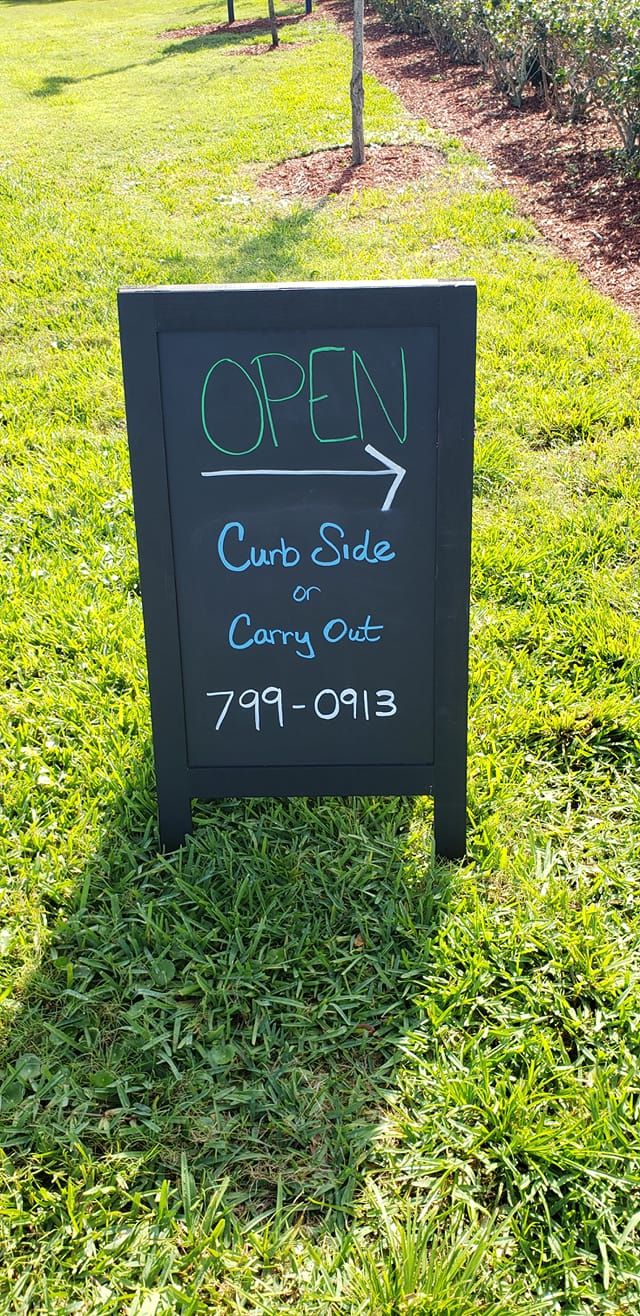 OPEN
Curb Side
or
Carry Out
799-0913